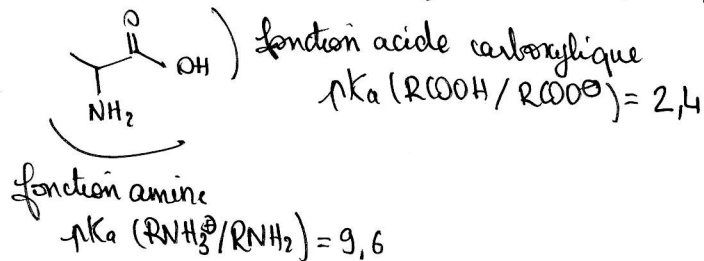 O
OH
NH₂
fonction acide carboxylique
pKa (RCOOH / RCOO⊖) = 2,4
fonction amine
pKa (RNH₃⊕/RNH₂) = 9,6